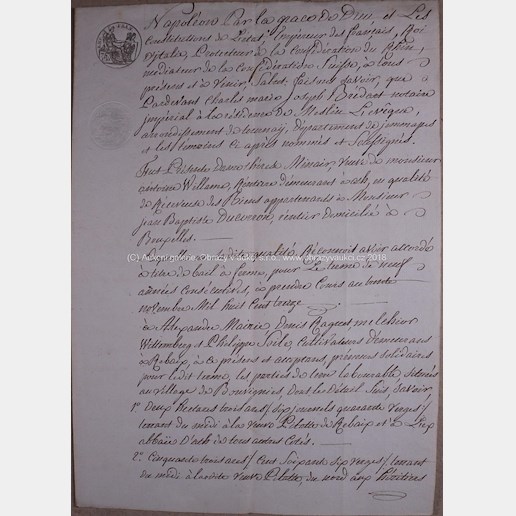 Napoléon Par la grace de Dieu, et Les
Constitutions de L'etat, Empereur des français, Roi
d'italie, Protecteur de la Confédération du Rhin,
mediateur de la Confédération Suisse, à tous
présens et à venir, Salut. fait savoir, que
Pardevant Charles marie Joseph Brédart notaire
impérial à la résidence de Meslin L'evêque,
arrondissement de tournaj, département de jemmapes
et les temoins ci après nommés et Soussignés.
Fut Présente Minair, Veuve de monsieur
antoine Willame, Rentiere demeurant à ath, en qualité
de Receveuse des Biens appartenants à Monsieur
jean Baptiste rentier domicilié à
Bruxelles.
Laquelle qualité, Reconnoit avoir accordé
à titre de bail à ferme, pour Le terme de neuf
années Consécutives, à prendre Cours au trente
novembre Mil huit Cent treize
(C) Aukční gréme Obrazy v aukci, s.r.o. www.obrazyvaukci.cz 2018
à Alexandre Mairie Denis Raguet, melchior
Wittemberg et Philippe Cultivateurs demeurans
à Rebaix, à ce présens et acceptans, preneurs Solidaires
pour ledit terme, les parties de terre labourable, Situées
au village de Bouvignies, Dont les Détail Suit, Savoir,
1°. Deux Hectares trois ares / Sept journels quarante verges /
tenant du midi à la veuve Pelotte de Rebaix et à L'ex
abbaie D'ath de tous autres Cotés.
2°. Cinquante trois ares / Cent Soixante dix verges / tenant
du midi à ladite veuve Pelotte, du nord aux Héritiers